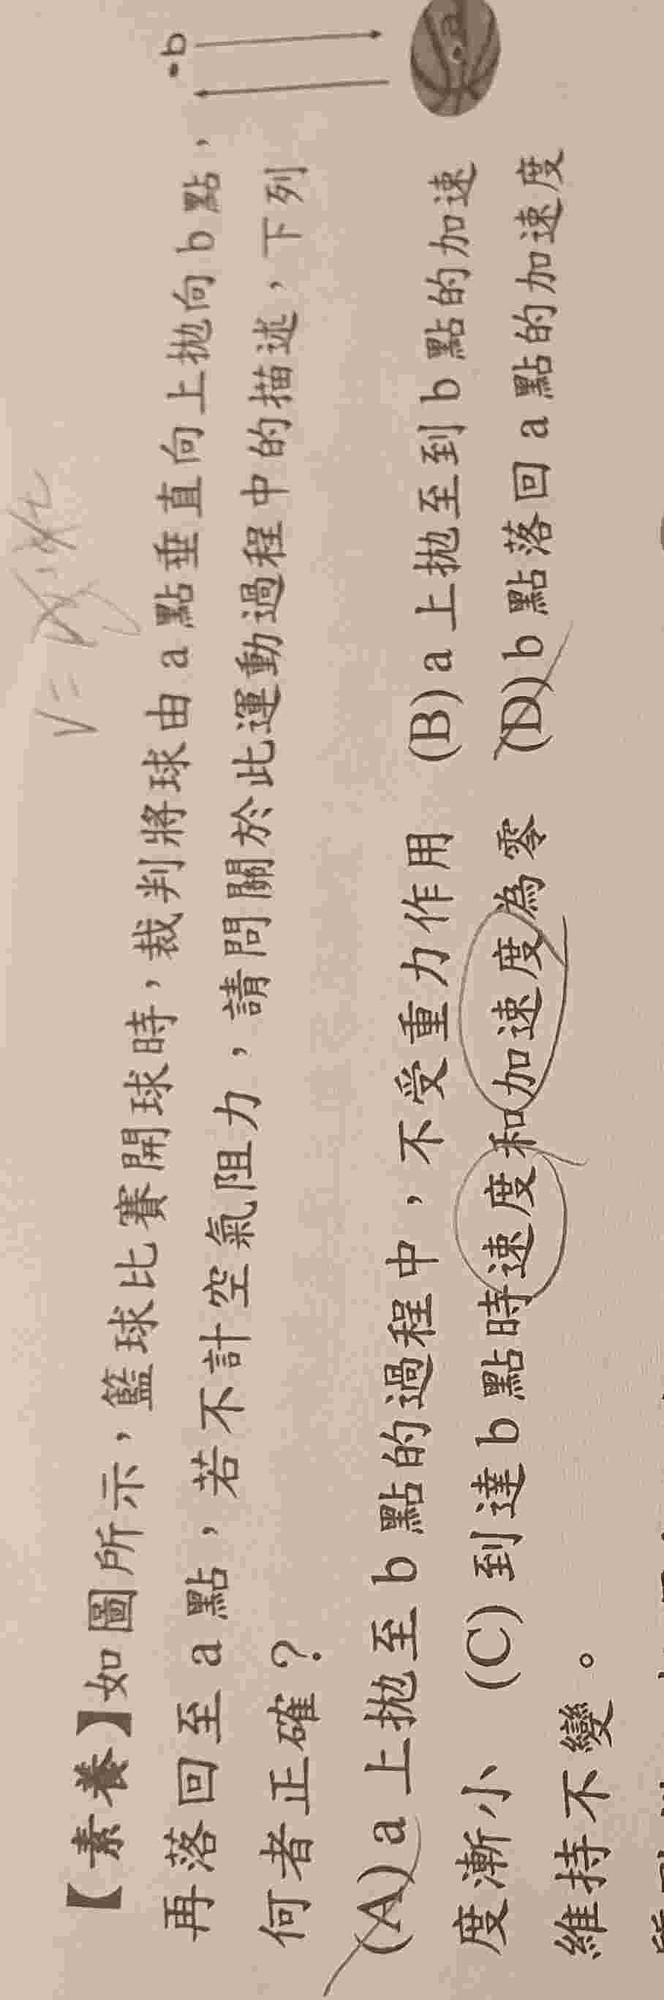 【素養】如圖所示，籃球比賽開球時，裁判將球由a點垂直向上拋向b點，
再落回至a點，若不計空氣阻力，請問關於此運動過程中的描述，下列
何者正確？
(A)a上拋至b點的過程中，不受重力作用 (B)a上拋至到b點的加速
度漸小 (C)到達b點時速度和加速度為零 (D)b點落回a點的加速度
維持不變。
b
a